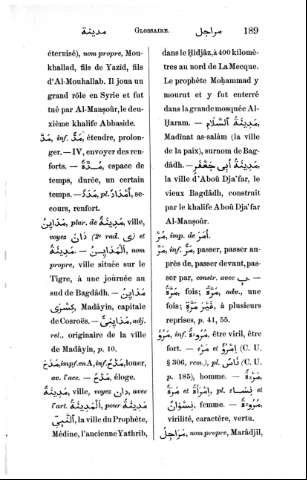 مدينة GLOSSAIRE. مراجل 189
éternisé), nom propre, Mou-
khallad, fils de Yazid, fils
d'Al-Mouhallab. Il joua un
grand rôle en Syrie et fut
tué par Al-Manṣoûr, le deu-
xième khalife Abbaside.
مَدَّ, inf. مَدّ, étendre, prolon-
ger. — IV, envoyer des ren-
forts. — مُدَّةٌ, espace de
temps, durée, un certain
temps. — مَدَدٌ, pl. أَمْدَادٌ, se-
cours, renfort.
مَدَايِنُ, plur. de مَدِينَةٌ, ville,
voyez دَانَ (2e rad. ى) et
مَدِينَةٌ. — اَلْمَدَايِنُ, nom
propre, ville située sur le
Tigre, à une journée au
sud de Bagdâdh. — مَدَايِنُ
كِسْرَى, Madâyin, capitale
de Cosroës. — مَدَايِنِىٌّ, adj.
rel., originaire de la ville
de Madâyin, p. 10.
مَدَحَ, impf. en A, inf. مَدْحٌ, louer,
ac. l'acc. — مَدْحٌ, éloge.
مَدِينَةٌ, ville, voyez دَانَ, avec
l'art. اَلْمَدِينَةُ, pour مَدِينَةُ
اَلنَّبِىِّ, la ville du Prophète,
Médine, l'ancienne Yathrib,
dans le Ḥidjâz, à 400 kilomè-
tres au nord de La Mecque.
Le prophète Moḥammad y
mourut et y fut enterré
dans la grande mosquée Al-
Ḥaram. — مَدِينَةُ اَلسَّلَامِ,
Madînat as-salâm (la ville
de la paix), surnom de Bag-
dâdh. — مَدِينَةُ أَبِى جَعْفَرٍ,
la ville d'Aboû Dja'far, le
vieux Bagdâdh, construit
par le khalife Aboû Dja'far
Al-Manṣoûr.
مُرْ, imp. de أَمَرَ.
مَرَّ, inf. مَرّ, passer, passer au-
près de, passer devant, pas-
ser par, constr. avec بِ. —
مَرَّةٌ, fois; مَرَّةً, adv., une
fois; غَيْرَ مَرَّةٍ, à plusieurs
reprises, p. 41, 55.
مَرُؤَ, inf. مُرُوءَةٌ, être viril, être
fort. — مَرْء et اِمْرُؤٌ (C. U.
§ 306, rem.), pl. نَاسٌ (C. U.
p. 185), homme. — مَرْأَةٌ
et اِمْرَأَةٌ, pl. نِسَاءٌ et
نِسْوَانٌ, femme. — مُرُوءَةٌ,
virilité, caractère, vertu.
مَرَاجِلُ, nom propre, Marâdjil,